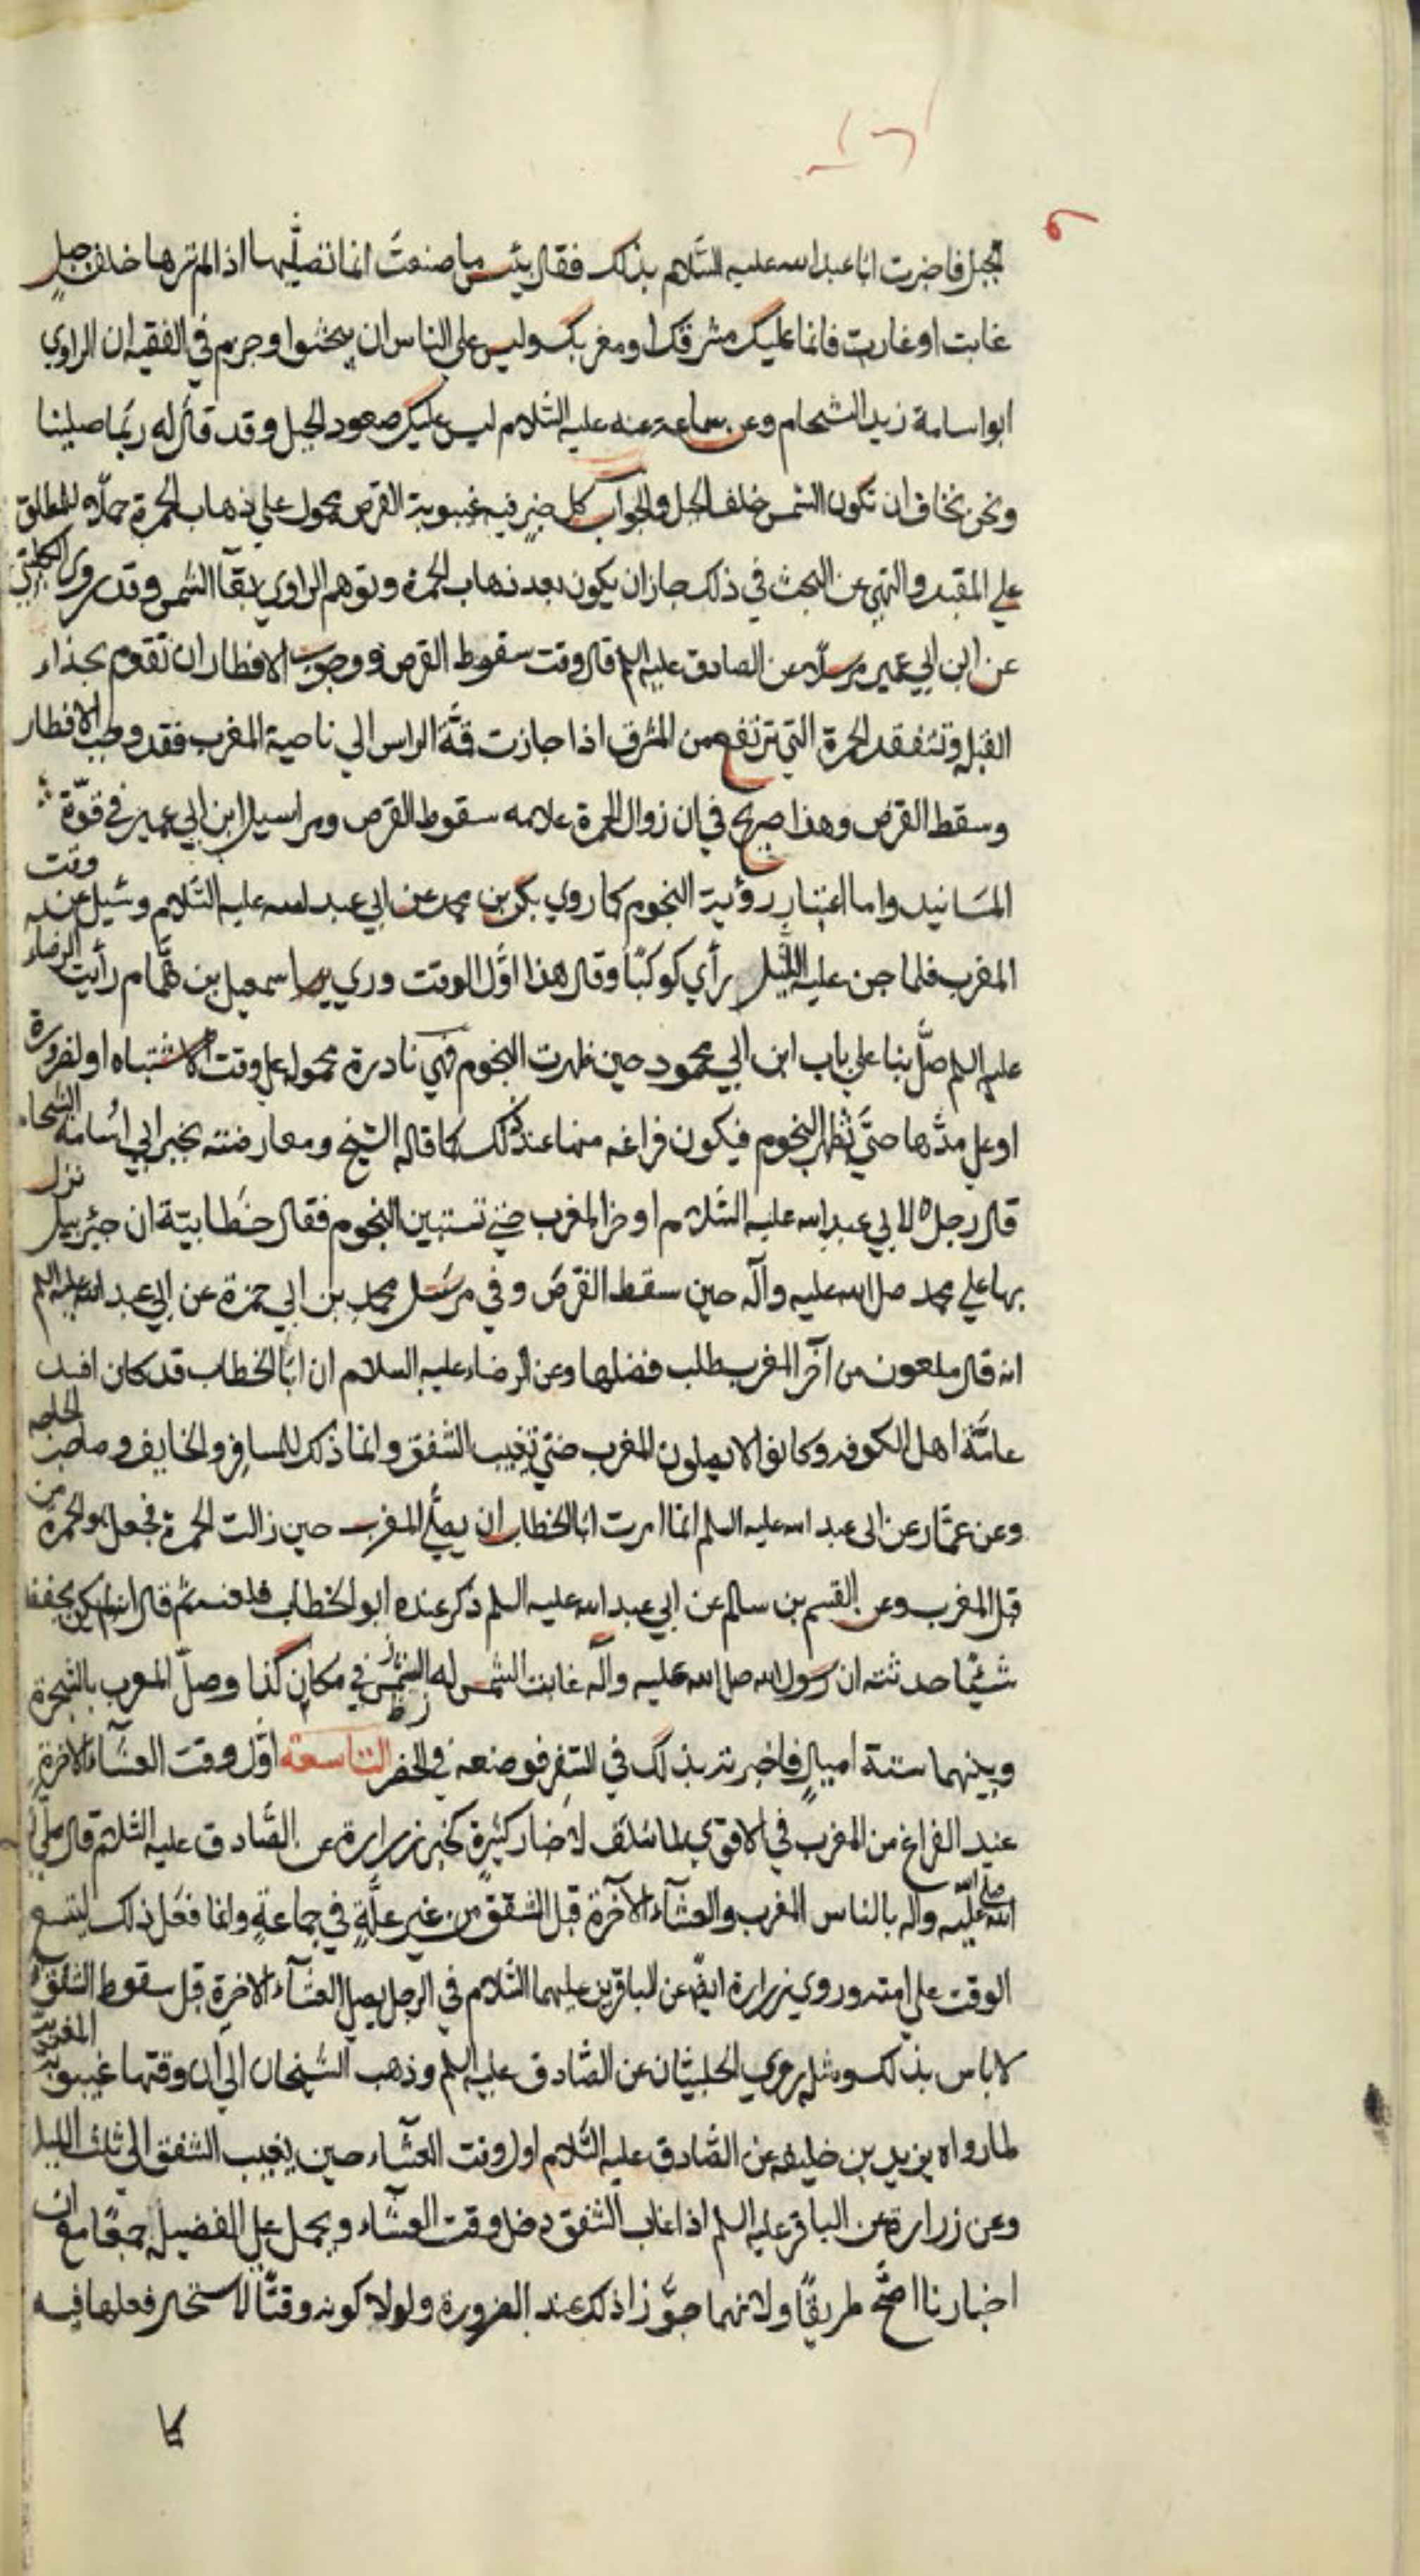 الجبل فاخبرت ابا عبد الله عليه السّلام بذلك فقال بئس ما صنعتَ انما تصلّيها اذا لم ترها خلف جبلٍ
غابت او غارت فانما عليك مشرقك او مغربك وليس على الناس ان يبحثوا وجزم في الفقيه ان الراوي
ابو اسامة زيد الشحام وعن سماعة عنه عليه السّلام ليس عليك صعود الجبل وقد قال له ربّما صلينا
ونحن نخاف ان تكون الشمس خلف الجبل والجواب كل خبر فيه غيبوبة القرص محمول على ذهاب الحمرة حملاً للمطلق
على المقيد والنهي عن البحث في ذلك جاز ان يكون بعد ذهاب الحمرة وتوهم الراوي بقآء الشمس وقد روى الكليني
عن ابن ابي عمير مرسلاً عن الصادق عليه السلم قال وقت سقوط القرص ووجوب الافطار ان تقوم بحذاء
القبلة وتتفقد الحمرة التي ترتفع من المشرق اذا جازت قمّة الراس الى ناحية المغرب فقد وجب الافطار
وسقط القرص وهذا صريح في ان زوال الحمرة علامه سقوط القرص ومراسيل ابن ابي عمير في قوّة
المسَانيد واما اعتبار رؤية النجوم كما روي بكر بن محمد عن ابي عبد الله عليه السّلام وسُيل عن وقت
المغرب فلما جن عليه الليل رأي كوكبًا وقال هذا اوّل الوقت وروي اسمعيل بن همّام رأيت الرضاء
عليه السلم صلّى بنا على باب ابن ابي محمود حين ظهرت النجوم فهي نادرة محمولة على وقت الاشتباه او لضرورة
او على مدّها حتّى تظهر النجوم فيكون فراغه منها عند ذلك كما قاله الشيخ ومعارضته بخبر ابي اُسامة الشحام
قال رجل لابي عبد الله عليه السّلام اوخر المغرب حتى تستبين النجوم فقال خطابيّة ان جبرئيل نزل
بها على محمد صلى الله عليه وآله حين سقط القرص وفي مرسَل محمد بن ابي حمزة عن ابي عبد الله عليه السلم
انه قال ملعون من اخّر المغرب طلب فضلها وعن الرضاء عليه السلام ان ابا الخطاب قد كان افسد
عامّة اهل الكوفه وكانوا لا يصلون المغرب حتى تغيب الشفق وانما ذلك للمسافر والخايف وصاحب الحاجه
وعن عمّار عن ابي عبد الله عليه السلم انما امرت ابا الخطاب ان يصلّي المغرب حين زالت الحمرة فجعل هو الحمرة من
قبل المغرب وعن القسم بن سالم عن ابي عبد الله عليه السلم ذكر عنده ابو الخطاب فلعنه ثم قال انه لم يكن يحفظ
شيئًا حدثته ان رسول الله صلى الله عليه وآله غابت الشمس له في مكان كذا وصلّى المغرب بالشجرة
وبينهما ستة اميالٍ فاخبرته بذلك في السّفر فوضعه في الحضر التاسعة اوّل وقت العشآء الاخرة
عند الفراغ من المغرب في الاقوي لما سَلف لاخبار كثيرة كخبر زرارة عن الصّادق عليه السّلام قال صلّى
صلى الله عليه واله بالناس المغرب والعشآء الآخرة قبل الشفق من غير علّةٍ في جماعةٍ وانما فعَل ذلك ليتسع
الوقت على امته وروي زرارة ايضً عن الباقرين عليهما السّلام في الرجل يصلي العشآء الاخرة قبل سقوط الشفق
لا باس بذلك ومثله روي الحلبيّان عن الصّادق عليه السلم وذهب الشيخان الى ان وقتها غيبوبة
لما رواه يزيد بن خليفه عن الصّادق عليه السّلام اول وقت العشآء حين يغيب الشفق الى ثلث الليل
وعن زرارة عن الباقر عليه السلم اذا غاب الشفق دخل وقت العشآء ويحمل على الفضيلة جمعًا مع ان
اخبارنا اصّح طريقًا ولانهما جوّزا ذلك عند الضرورة ولولا كونه وقتًا لاستحال فعلها فيه
كا